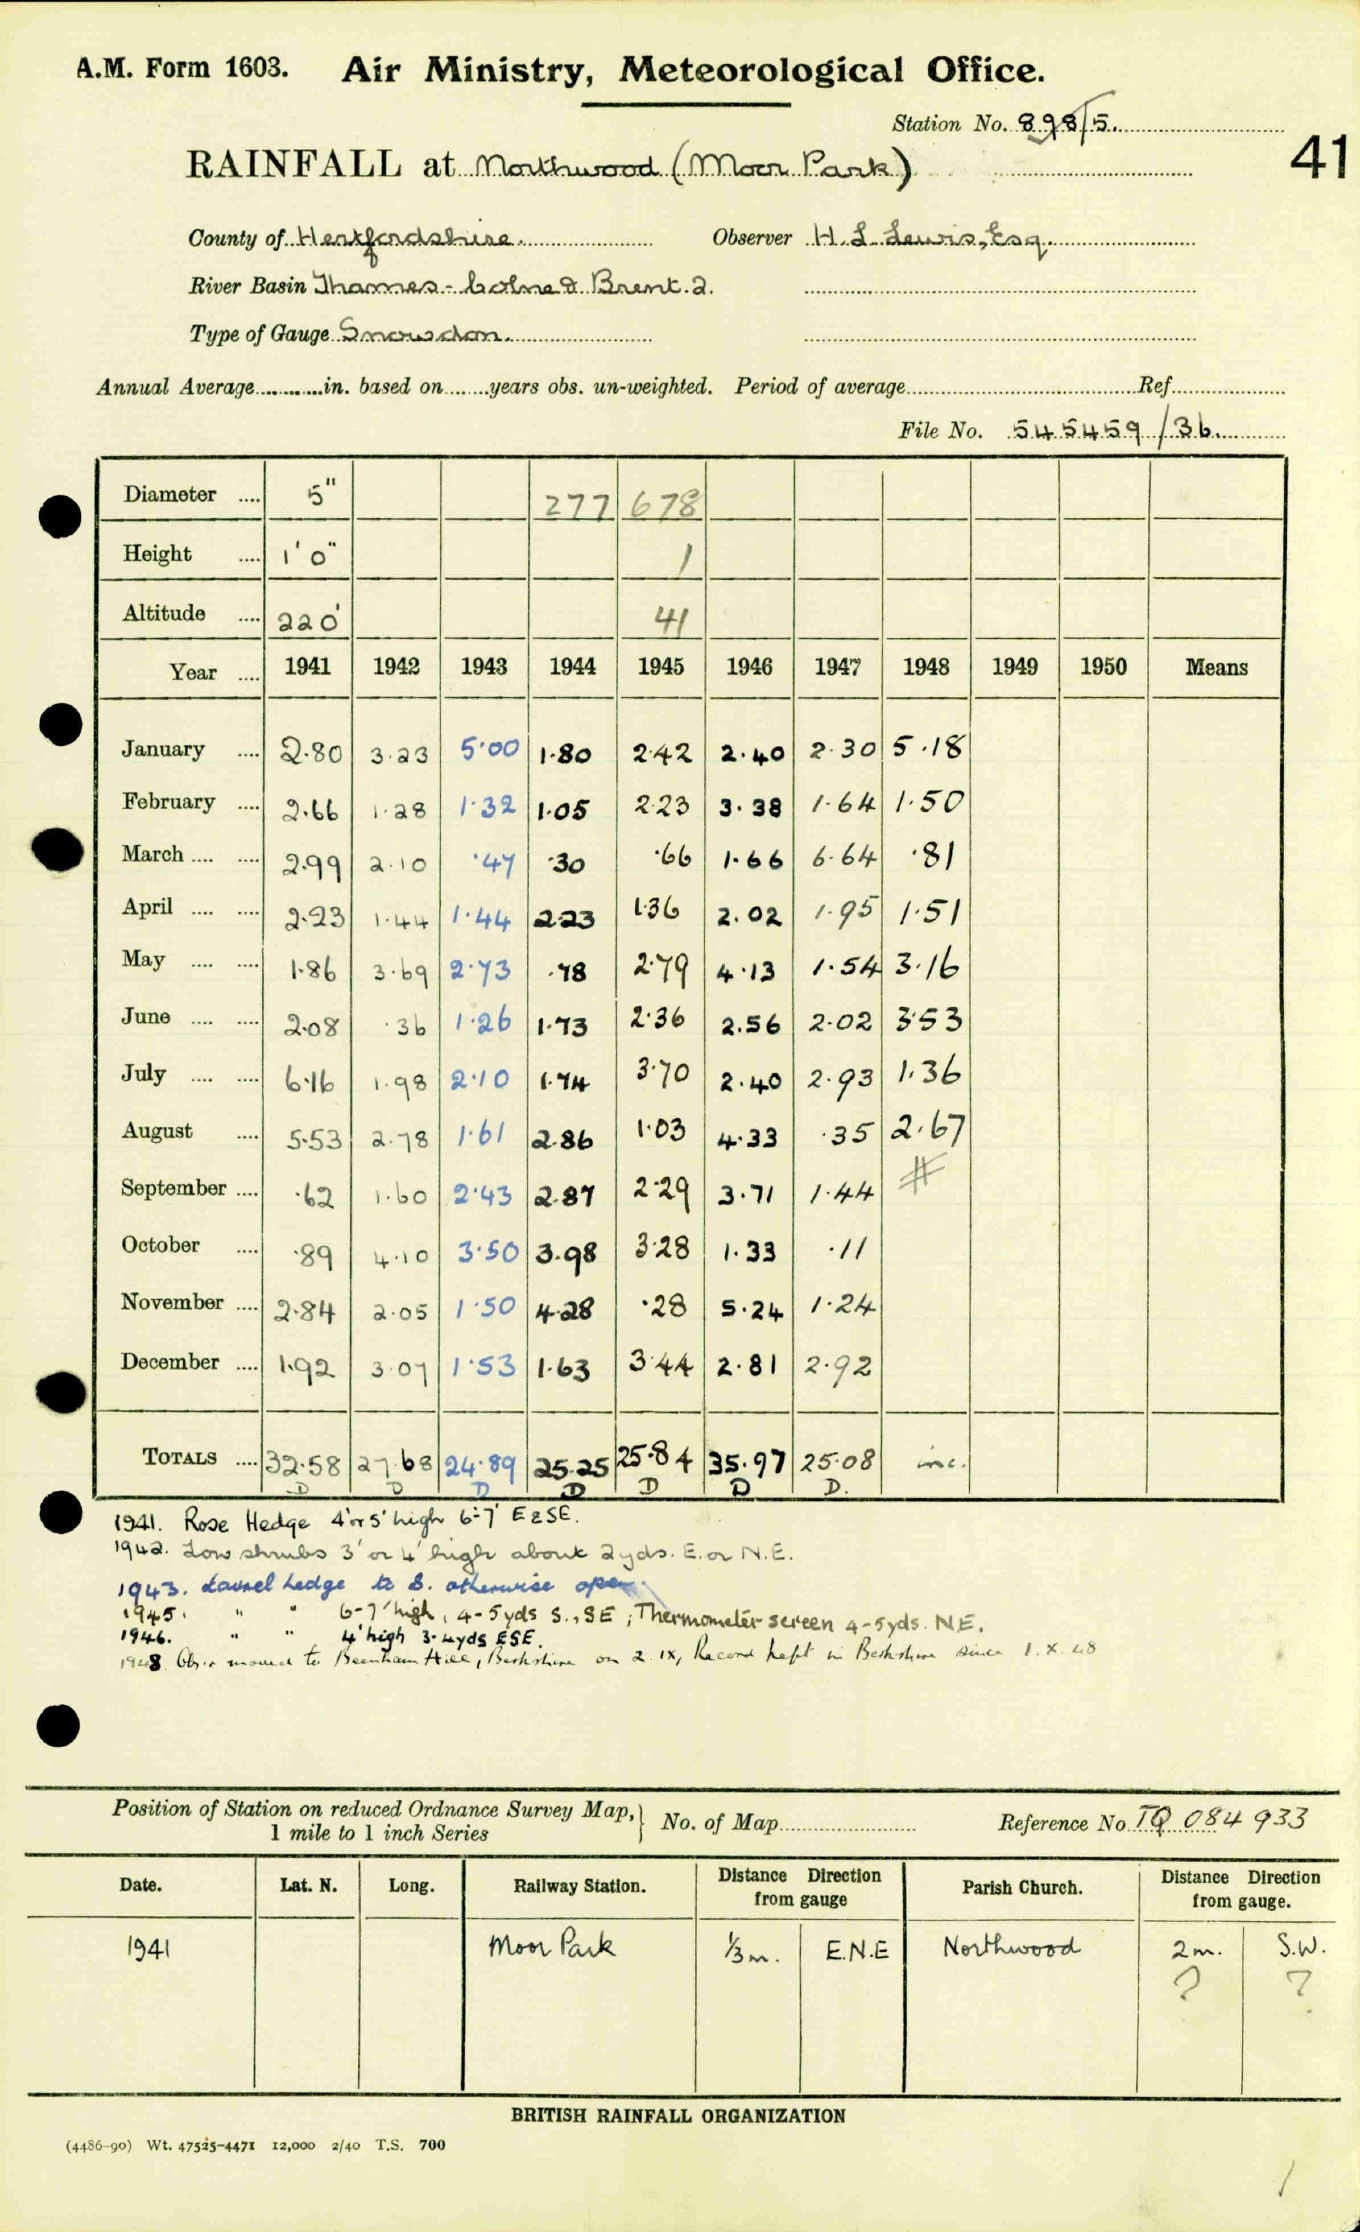 A.M. Form 1603. Air Ministry, Meteorological Office.
Station No. 898/5.
41
RAINFALL at Northwood (Moor Park)
County of Hertfordshire. Observer H. L. Lewis, Esq.
River Basin Thames - Colne & Brent. 2.
Type of Gauge Snowdon.
Annual Average in. based on years obs. un-weighted. Period of average Ref
File No. 545459/36.
Diameter .... 5" 277 678
Height .... 1' 0" 1
Altitude .... 220' 41
Year .... 1941 1942 1943 1944 1945 1946 1947 1948 1949 1950 Means
January .... 2.80 3.23 5.00 1.80 2.42 2.40 2.30 5.18
February .... 2.66 1.28 1.32 1.05 2.23 3.38 1.64 1.50
March .... .... 2.99 2.10 .47 .30 .66 1.66 6.64 .81
April .... .... 2.23 1.44 1.44 2.23 1.36 2.02 1.95 1.51
May .... .... 1.86 3.69 2.73 .78 2.79 4.13 1.54 3.16
June .... .... 2.08 .36 1.26 1.73 2.36 2.56 2.02 3.53
July .... .... 6.16 1.98 2.10 1.74 3.70 2.40 2.93 1.36
August .... 5.53 2.78 1.61 2.86 1.03 4.33 .35 2.67
September .... .62 1.60 2.43 2.87 2.29 3.71 1.44 #
October .... .89 4.10 3.50 3.98 3.28 1.33 .11
November .... 2.84 2.05 1.50 4.28 .28 5.24 1.24
December .... 1.92 3.07 1.53 1.63 3.44 2.81 2.92
TOTALS .... 32.58 27.68 24.89 25.25 25.84 35.97 25.08 inc.
D D D D D D D.
1941. Rose Hedge 4' or 5' high 6'-7' E & SE.
1942. Low shrubs 3' or 4' high about 2 yds. E. or N.E.
1943. Laurel hedge to S. otherwise open.
1945. " " 6-7' high, 4-5 yds S., SE; Thermometer screen 4-5 yds. NE.
1946. " " 4' high 3-4 yds ESE.
1948 Obsr moved to Beenham Hill, Berkshire on 2.IX, Record kept in Berkshire since 1.X.48
Position of Station on reduced Ordnance Survey Map, } No. of Map Reference No TQ 084 933
1 mile to 1 inch Series
Date. Lat. N. Long. Railway Station. Distance Direction from gauge Parish Church. Distance Direction from gauge.
1941 Moor Park 1/3 m. E.N.E Northwood 2 m. S.W.
? ?
BRITISH RAINFALL ORGANIZATION
(4486-90) Wt. 47525-4471 12,000 2/40 T.S. 700